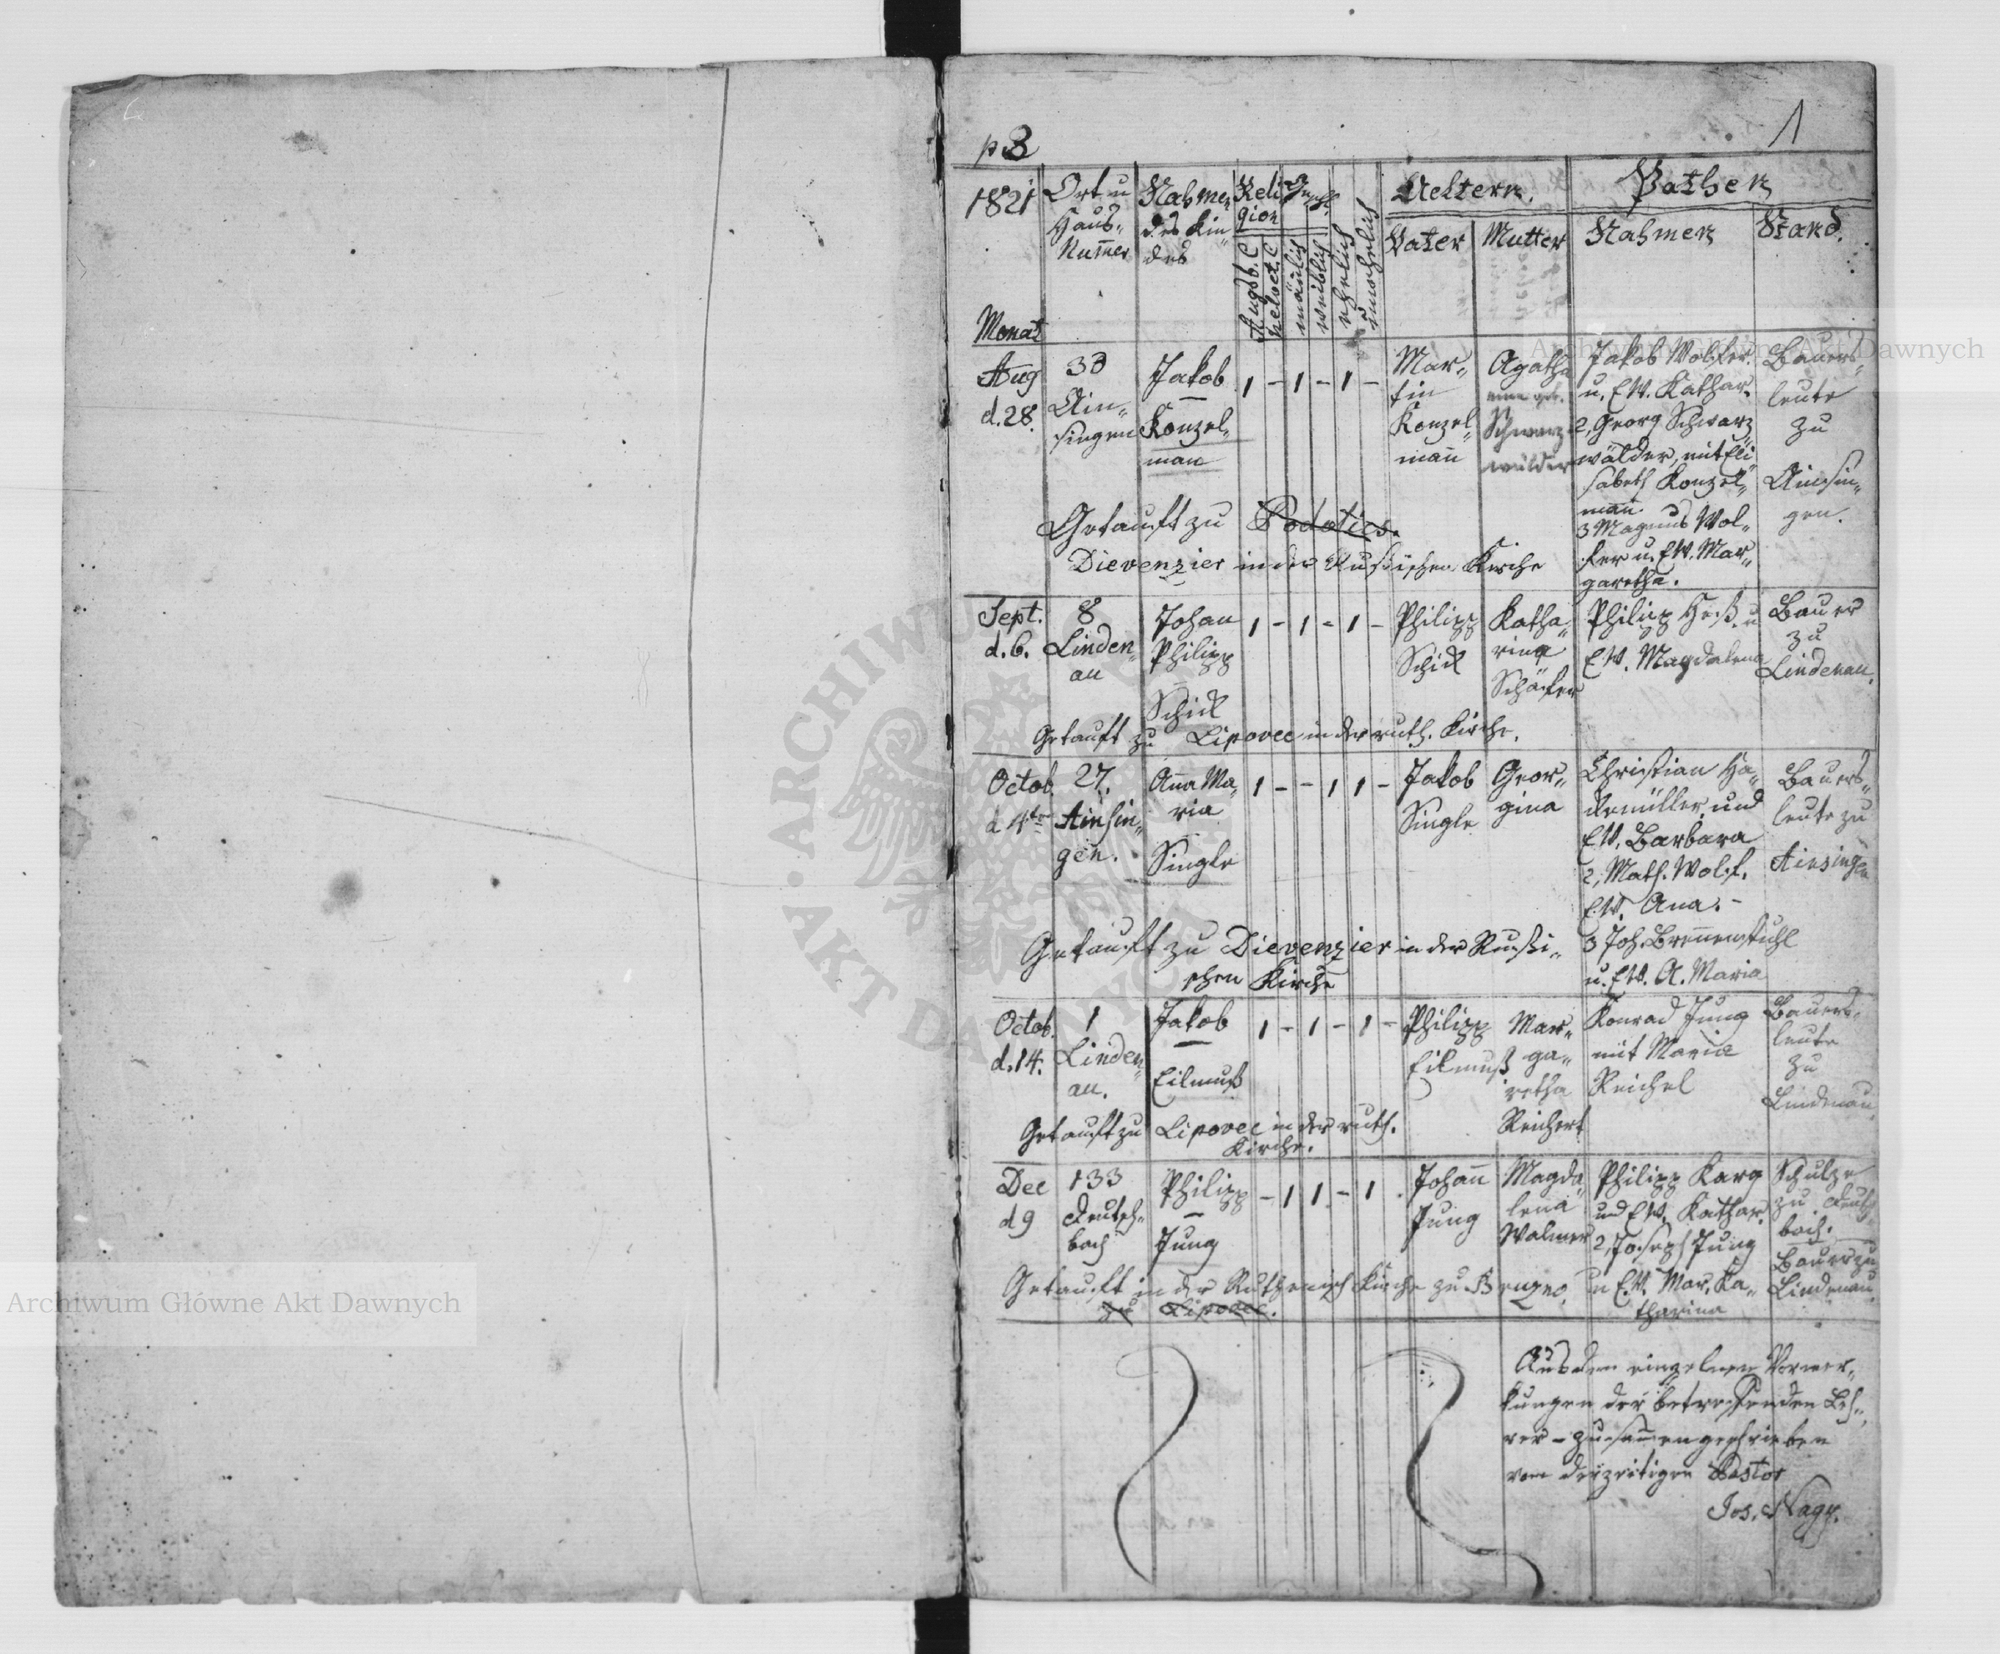 p 3
1
1821
Ort u
Haus-
Num̅er
Nahmen
des Kin-
des
Reli
gion
Augsb. C
helvet. C
Geschl.
mänlich
weiblich
ehelich
unehelich
Aeltern.
Vater
Mutter
Pathen
Nahmen
Stand.
Monat
Aug
d. 28.
30
Ain-
singen
Jakob
Konzel-
man
1 - 1 - 1 -
Mar-
tin
Konzel-
man̅
Agatha
Schwarz-
wälder
Jakob Wolfer
u. EW. Kathar.
2, Georg Schwarz
wälder, mit Eli
sabeth Konzel-
man̅
3 Magnus Wol-
fer u. EW. Mar-
garetha.
Bauers-
leute
zu
Ainsin-
gen.
Getauft zu Podatics.
Dievenzier in der Rußischen Kirche
Sept.
d. 6.
8
Linden-
au
Johan
Philipp
Schick
1 - 1 - 1 -
Philipp
Schick
Katha-
rina
Schäfer
Philipp Heß u
EW. Magdalena
Bauer
zu
Lindenau.
Getauft zu Lipovec in der ruth. Kirche.
Octob
d 4ten
27.
Ainsin-
gen.
An̅a Ma-
ria
Single
1 - - 1 1 -
Jakob
Single
Geor-
gina
Christian Ha-
kemüller, und
EW. Barbara
2, Math. Wolf.
EW. Ana. -
3 Joh. Bren̅enstuhl
u. EW. A. Maria
Bauers-
leute zu
Ainsingen
Getauft zu Dievenzier in der Rußi-
schen Kirche
Octob.
d. 14.
1
Linden-
au.
Jakob
Eilmuß
1 - 1 - 1 -
Philipp
Eilmuß
Mar-
ga-
retha
Reichert
Konrad Jung
mit Maria
Reichel
Bauers-
leute
zu
Lindenau.
Getauft zu Lipovec in der ruth.
Kirche.
Dec
d 9
133
Reutsch-
bach
Philipp
Jung
- 1 1 - 1 .
Johan̅
Jung
Magda-
lena
Walmer
Philipp Karg
und EW. Kathar.
2, Joseph Jung
u E.W. Mar. Ka-
tharina
Schulze
zu
bach.
Bauer zu
Lindenau.
Getauft in der Ruthenisch Kirche zu
zu Lipovec.
Aus den einzelnen Vormer-
kungen der betreffenden Leh-
rer - zusam̅engeschrieben
vom derzeitigen Pastor
Jos. Nagy.
ARCHIWUM
AKT DAWNYCH
Archiwum Główne Akt Dawnych
Archiwum Główne Akt Dawnych